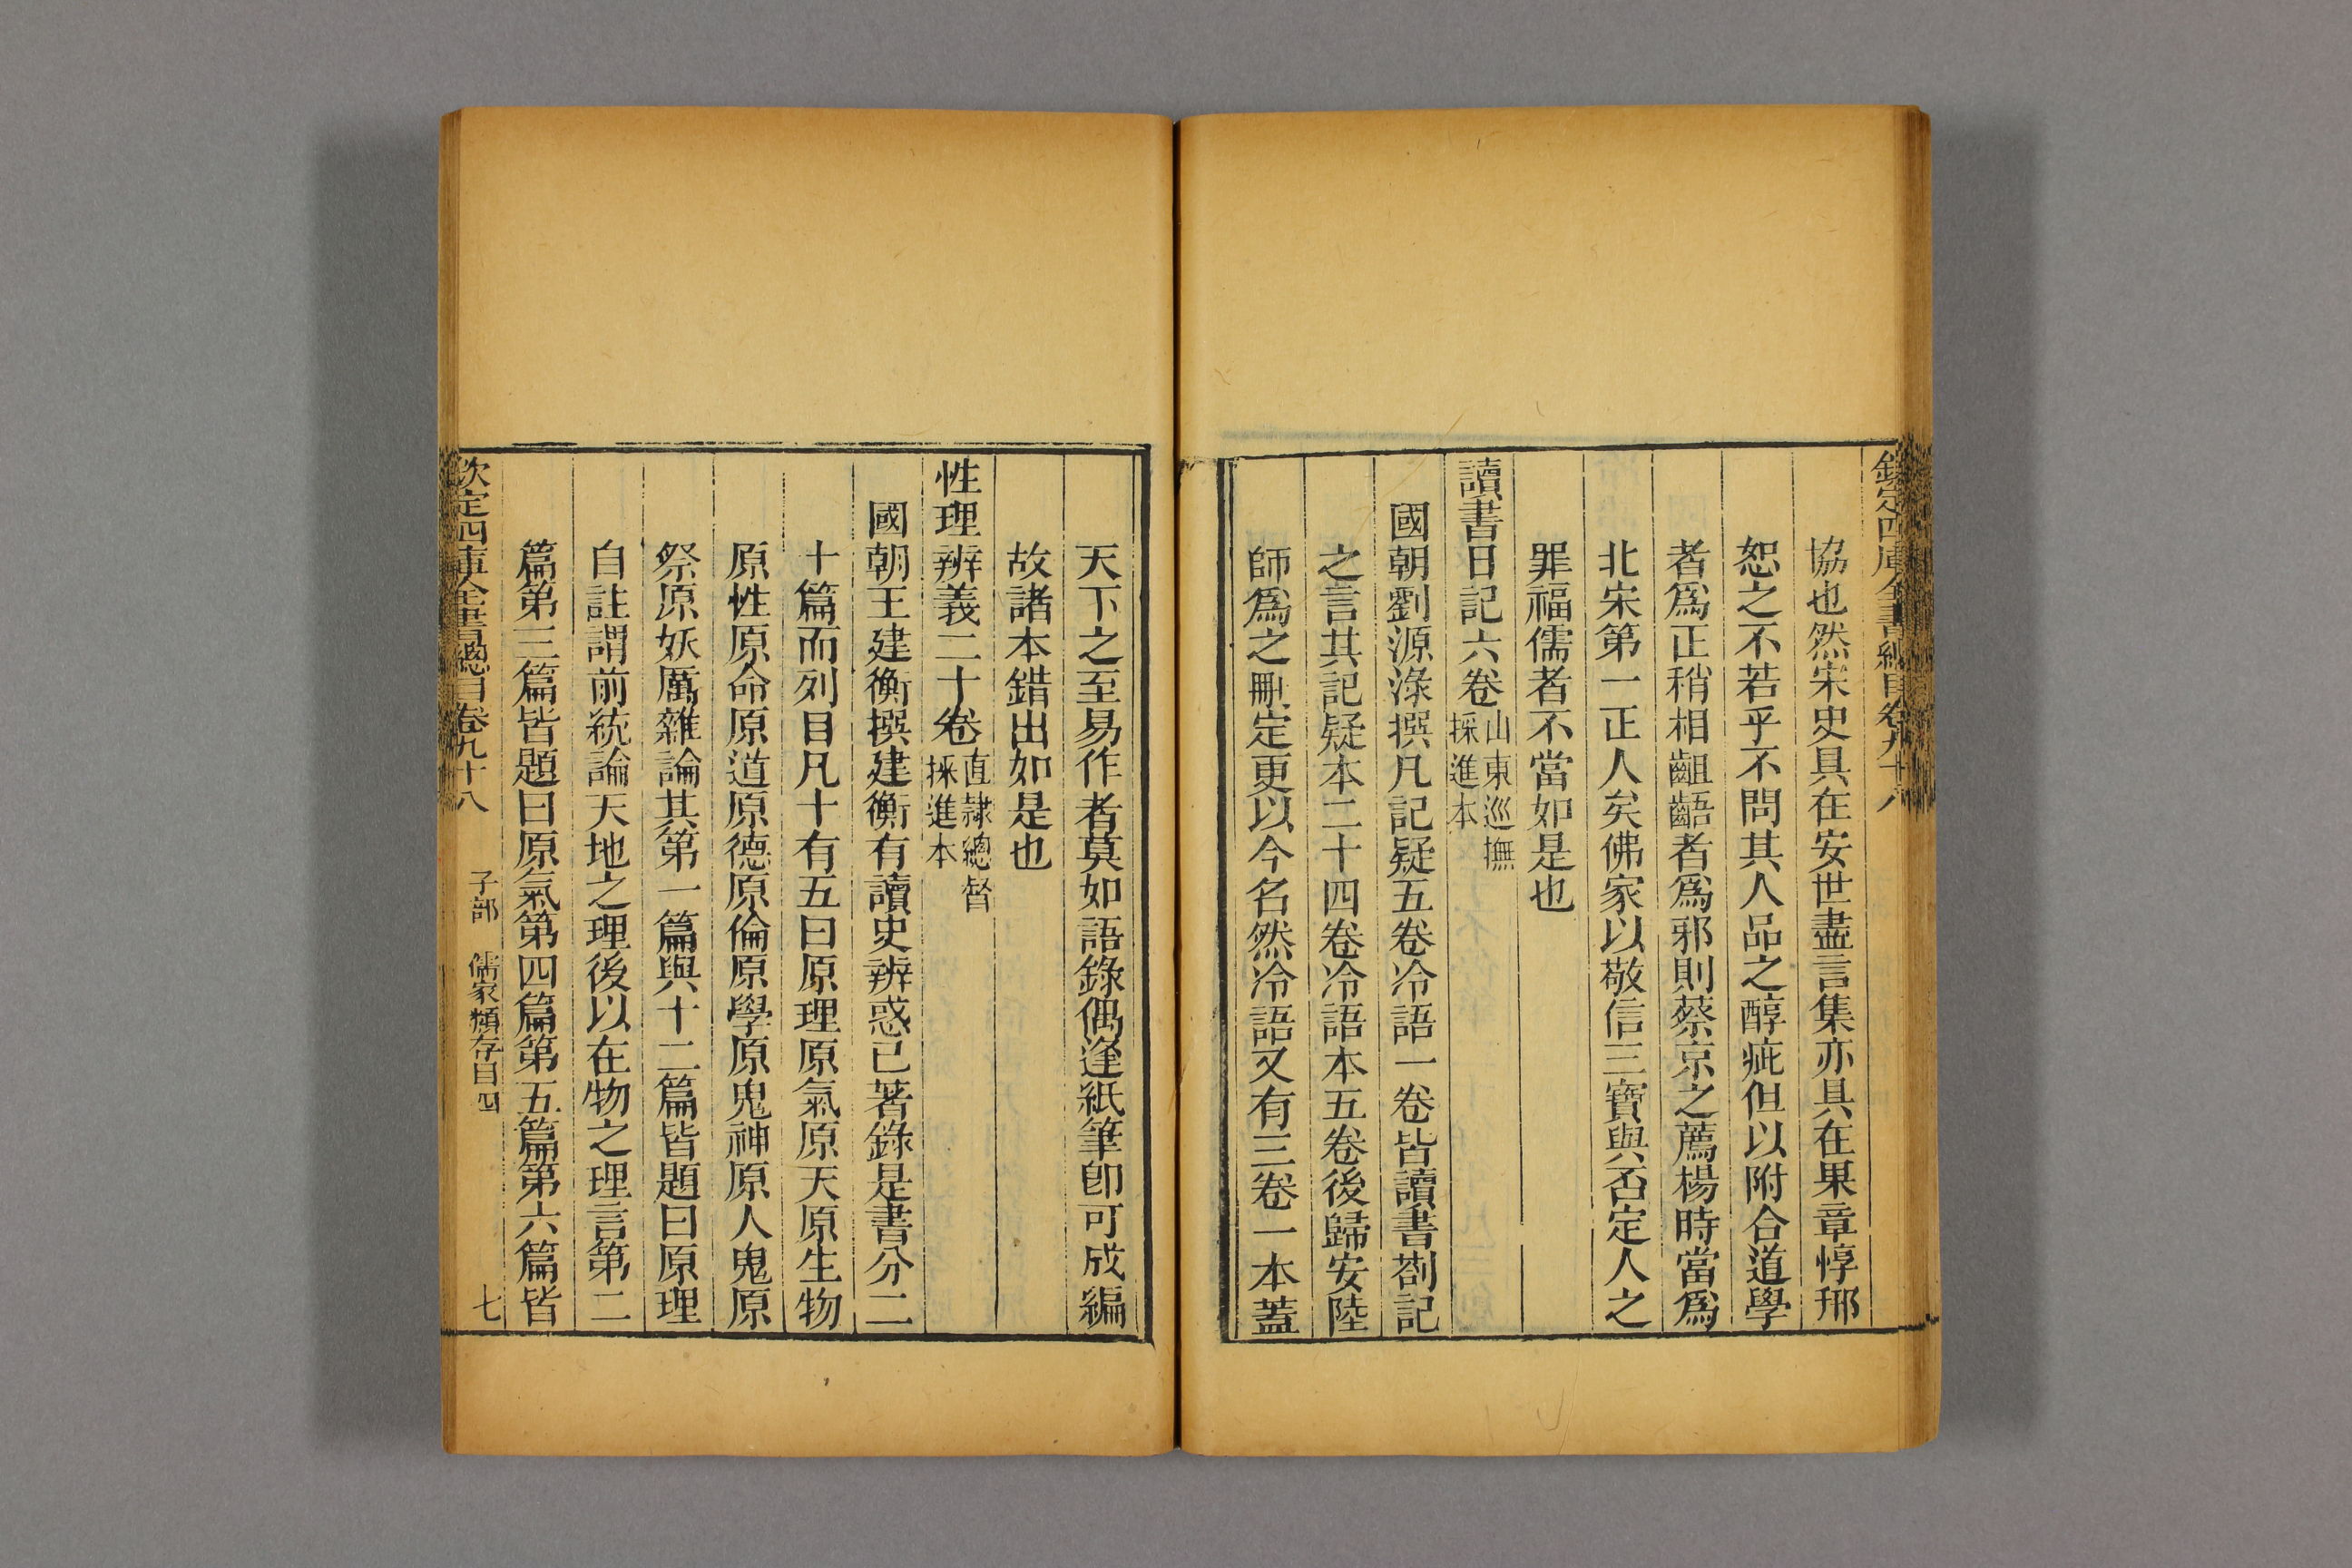 欽定四庫全書總目卷九十八
協也然宋史具在安世盡言集亦具在果章惇邢
恕之不若乎不問其人品之醇疵但以附合道學
者爲正稍相齟齬者爲邪則蔡京之薦楊時當爲
北宋第一正人矣佛家以敬信三寶與否定人之
罪福儒者不當如是也
讀書日記六卷山東巡撫採進本
國朝劉源淥撰凡記疑五卷冷語一卷皆讀書劄記
之言其記疑本二十四卷冷語本五卷後歸安陸
師爲之刪定更以今名然冷語又有三卷一本蓋
天下之至易作者莫如語錄偶逢紙筆卽可成編
故諸本錯出如是也
性理辨義二十卷直隸總督採進本
國朝王建衡撰建衡有讀史辨惑已著錄是書分二
十篇而列目凡十有五曰原理原氣原天原生物
原性原命原道原德原倫原學原鬼神原人鬼原
祭原妖厲雜論其第一篇與十二篇皆題曰原理
自註謂前統論天地之理後以在物之理言第二
篇第三篇皆題曰原氣第四篇第五篇第六篇皆
欽定四庫全書總目卷九十八 子部 儒家類存目四 七